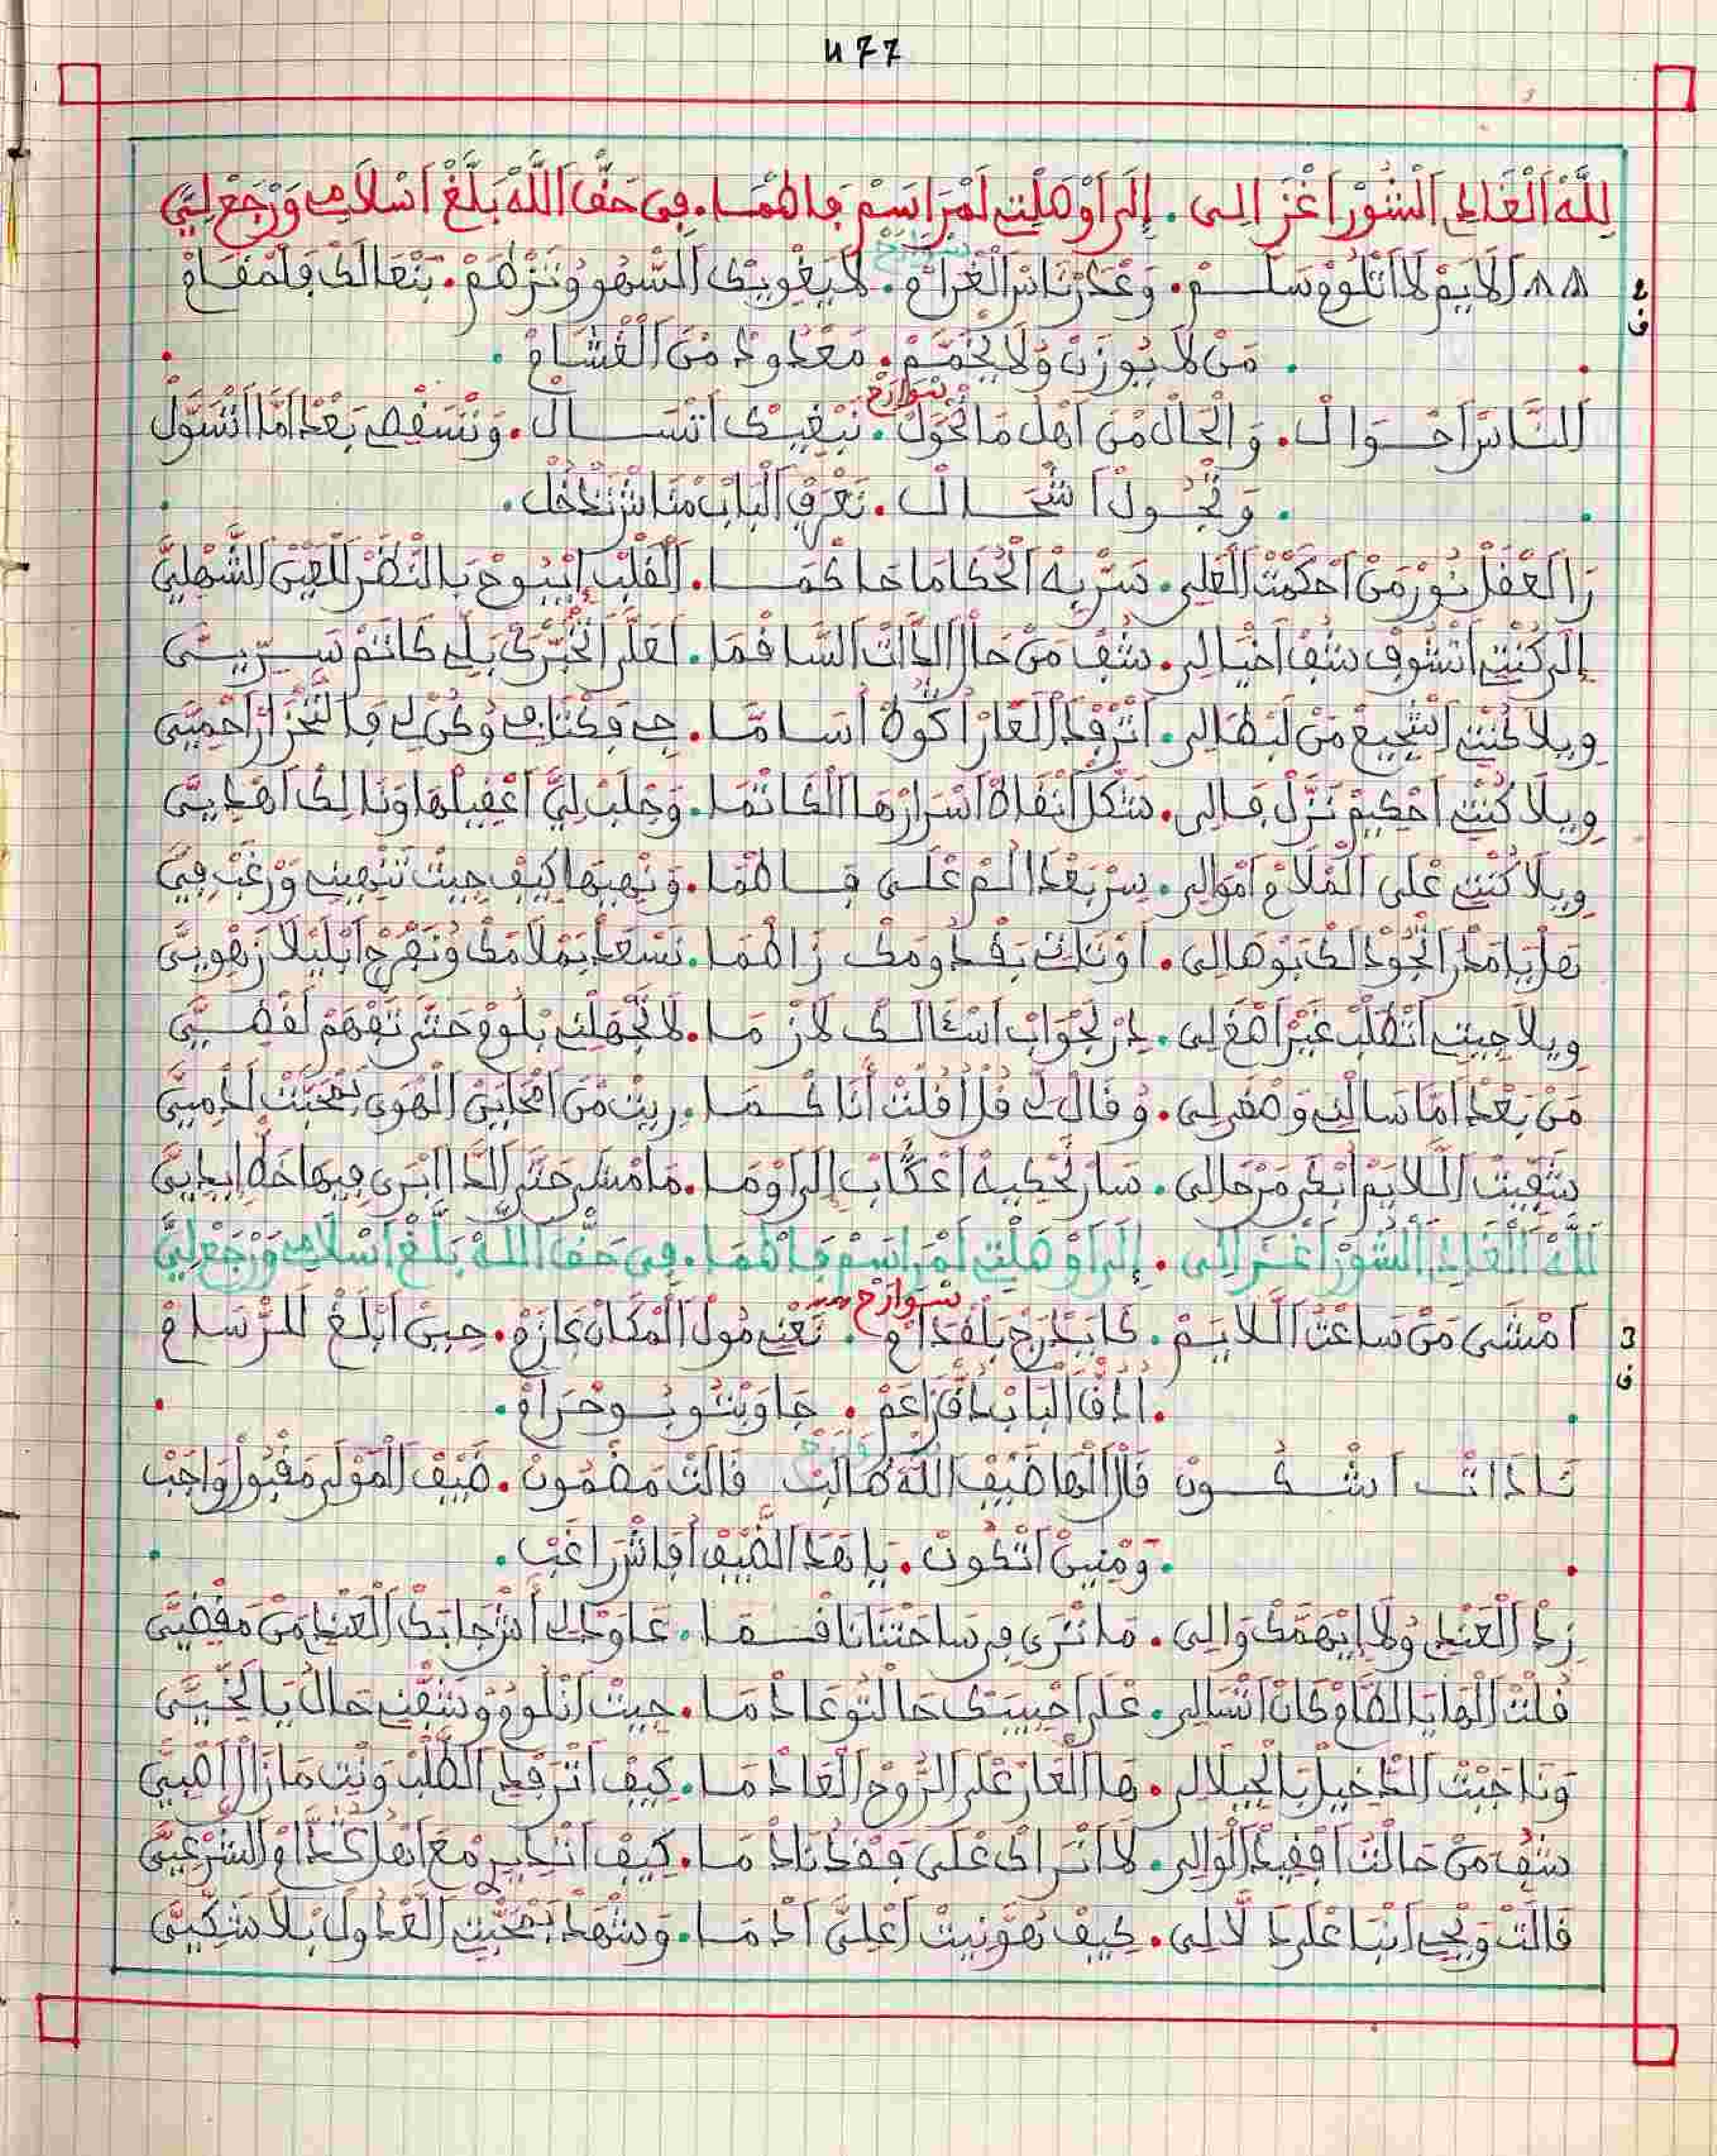 477
لله الغادي الشور اغزالي . إلى اوصلت لمراسم فاطما . في حق الله بلغ اسلامي ورجع ليَّ
ف 2
الايم لا اتلوم وسلم . وعدر ناس الغرام .
سوارح
لا يغويك السهو وتزهم . بتعالك فلمقام
من لا يوزن ولا يخمم . معدود من الغشام .
الناس احوال . والحال من اهل ما تحول .
سوارح
نبغيك اتسال . وتسقصي بعد اما اتسول
وتجول اشحال . تعرف الباب مناش تدخل .
را العقل نور من احكمت العلي . سر به الحكاما حاكما . القلب ايبوح بالنضر للعين الشهليَّ
إلى كنت اتشوف شف اخيالي . شف من حال الذات السافما . لعلى تخبرك بلي كاتم سريتي
ويلا كنت اشجيع من لبطالي . اترفد العار اكواه اساما .
ويلا كنت احكيم نزل فالي . شكل انفاد اسرارها الكاتما . وجلب ليَّ اعقيلها ونا لك اهديتي
ويلا كنت على الملاح اموالي . سر بعد الم على فاطما . ونهيها كيف جيت تنهيني ورغب فيَّ
هل يا مدرا الجود لك يوهالي . اوناك بقدومك راطما . نسعد بملامك ونفرج ابليلا زهويَّ
ويلا جيت اتطلب غير اصغ لي . در لجواب اسئالك لازما . لا تجهلني بلوم حتى تفهم لفضيَّ
من بعد اما سالني وصغر لي . وقال لي قل اقلت انا كما . ريت من امحاين الهوى بمحبت ادميَّ
شقيت اللايم ابكى من حالي . سار يحكيه اعكاب إلى اوما . ما مشى حتى الدا ابرى فيها خط ايديَّ
لله الغادي الشور اغزالي . إلى اوصلت لمراسم فاطما . في حق الله بلغ اسلامي ورجع ليَّ
ف 3
امشى من ساعت اللايم . كايدرج بلقدام .
سوارح
تعني مول المكان عازم . حيى ابلغ للرسام
ادق الباب دق زاعم . جاوبتو بوحرام .
نادات اشكون قال الها ضيف الله طالب قالت مضمون . ضيف المولى مقبول واجب
ومنين اتكون . يا هد الضيف افاش راغب .
زد العندي ولا إيهمك والي . ما نترى في ساحتنا نافسما . عاود لي اش جابك العندي من مقضيَّ
قلت الها يا لطام كان اتسالي . على احبيبك حالتو عادما . جيت انلوموا وشفني حال يا لخيتي
ونا جبت الدخيل بالجيلالي . ها العار على الروح العادما . كيف اترفد الطلب ونت مازال اصبيَّ
شف من حالت افقيد الوالي . لا اتراك على فقد نادما . كيف اتدير مع اهل كدام الشرعيَّ
قالت ويحي انبا على دلالي . كيف هونيت اعليَّ ادما . وشهد بمحبت العدول بلا شكيَّ